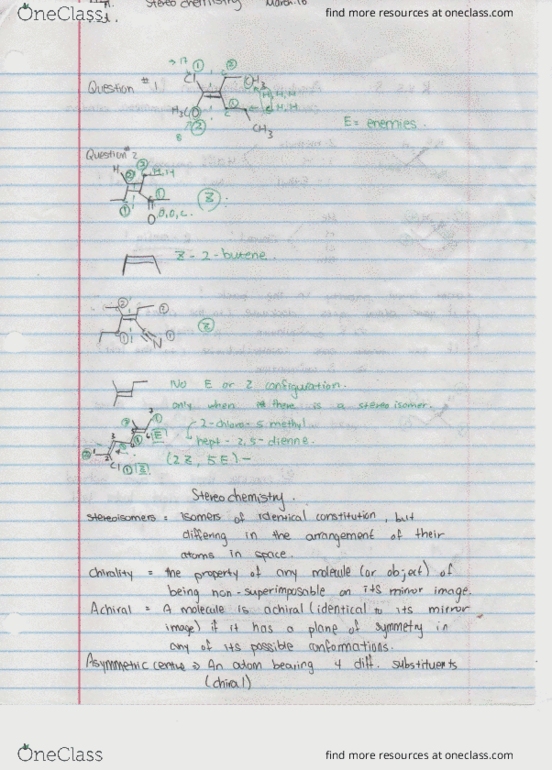 OneClass
find more resources at oneclass.com
Stereochemistry March 10
Question #1
Cl
CH3
H,H,H
H3CO
C,H,H
CH3
E= enemies.
Question #2
H
H,H
O
O,O,C.
Z
Z-2-butene.
N
Z
No E or Z configuration.
only when there is a stereo isomer.
2-chloro-5 methyl
hept-2,5-dienne.
(2Z, 5E)-
Cl
E
Z
Stereochemistry.
stereoisomers = Isomers of identical constitution, but
differing in the arrangement of their
atoms in space.
Chirality = the property of any molecule (or object) of
being non-superimposable on its mirror image.
Achiral = A molecule is achiral (identical to its mirror
image) if it has a plane of symmetry in
any of its possible conformations.
Asymmetric centre => An atom bearing 4 diff. substituents
(chiral)
OneClass
find more resources at oneclass.com